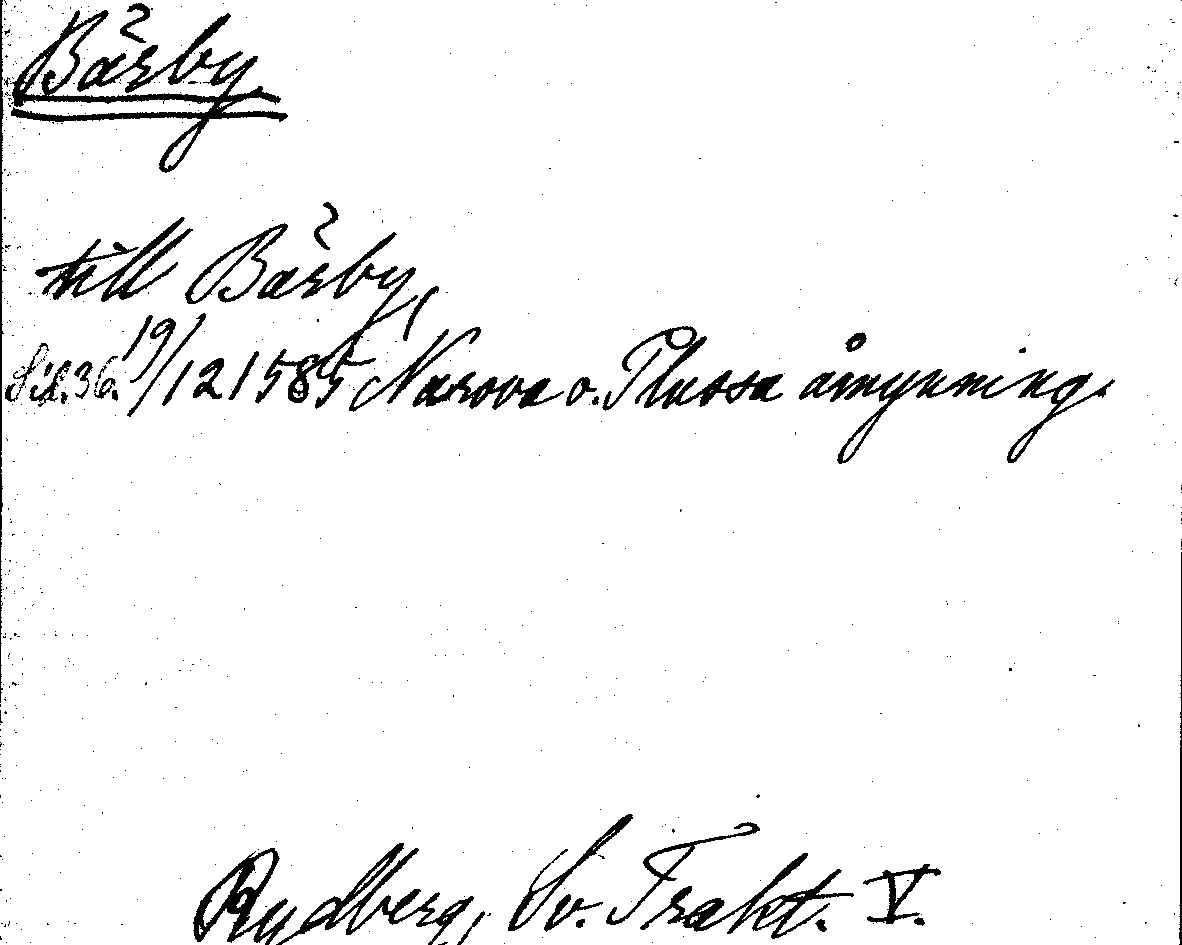 Bärby
till Bärby,
Sid. 36. 19/12 1585 Narova o. Plussa åmynning.
Rydberg, Sv. Trakt. V.